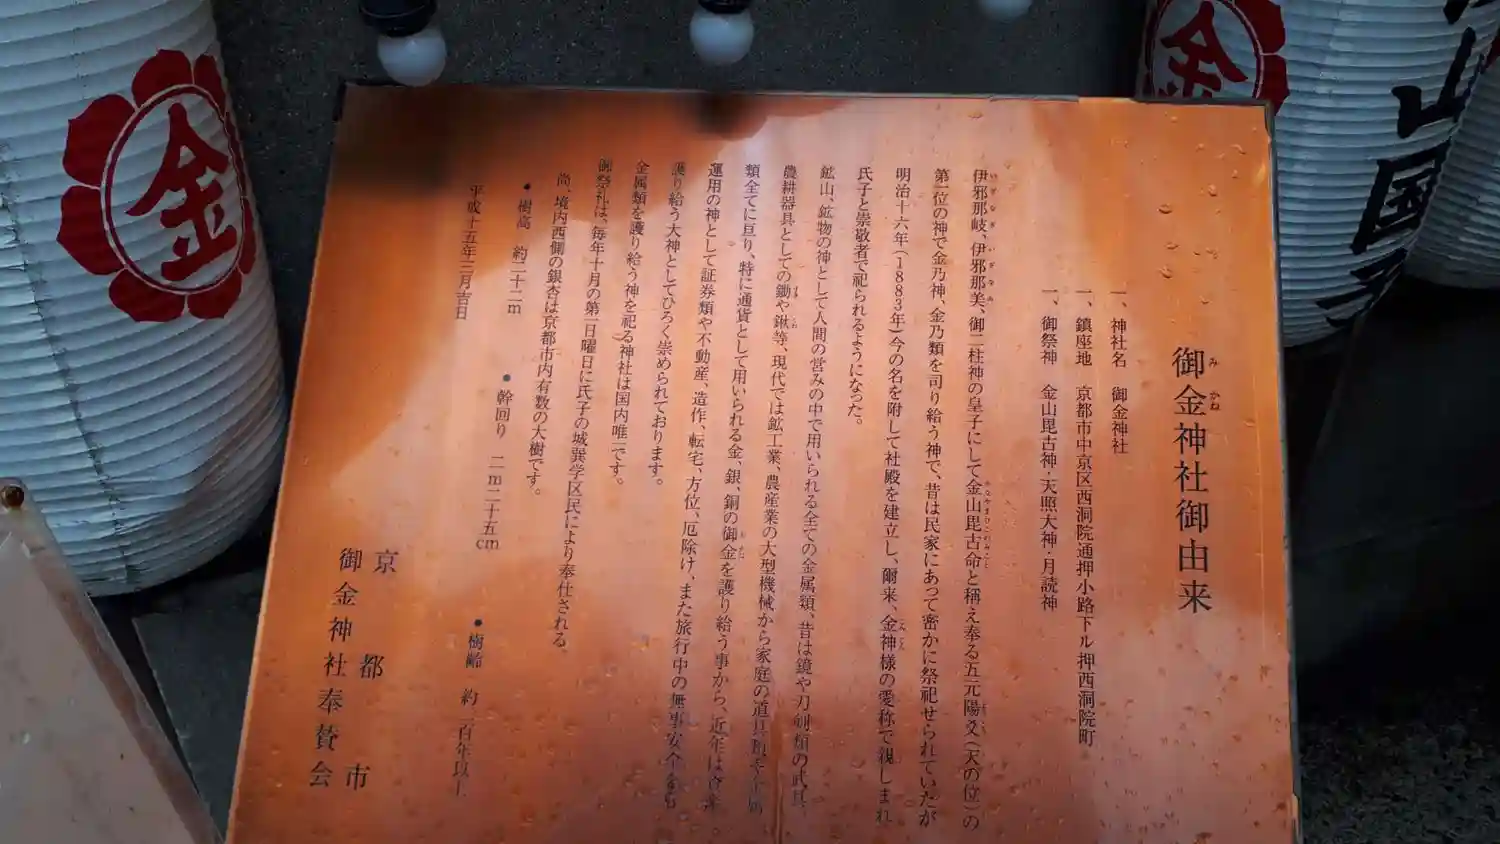 御金神社御由来
みかね
一、神社名　御金神社
一、鎮座地　京都市中京区西洞院通押小路下ル押西洞院町
一、御祭神　金山毘古神・天照大神・月読神
伊邪那岐、伊邪那美、御二柱神の皇子にして金山毘古命と稱え奉る五元陽爻（天の位）の
第一位の神で金乃神、金乃類を司り給う神で、昔は民家にあって密かに祭祀せられていたが
明治十六年（1883年）今の名を附して社殿を建立し、爾来、金神様の愛称で親しまれ
氏子と崇敬者で祀られるようになった。
鉱山、鉱物の神として人間の営みの中で用いられる全ての金属類、昔は鏡や刀剣類の武具、
農耕器具としての鋤や鍬等、現代では鉱工業、農産業の大型機械から家庭の道具類
類全てに亘り、特に通貨として用いられる金、銀、銅の御金を護り給う事から、近年は
運用の神として証券類や不動産、造作、転宅、方位、厄除け、また旅行中の無事安全を
護り給う大神としてひろく崇められております。
金属類を護り給う神を祀る神社は国内唯一です。
御祭礼は、毎年十月の第一日曜日に氏子の城巽学区民により奉仕される。
尚、境内西側の銀杏は京都市内有数の大樹です。
●樹高　約二十二m　●幹回り　二m二十五cm　●樹齢　約二百年以上
平成十五年三月吉日
京都市
御金神社奉賛会
金
金
山国